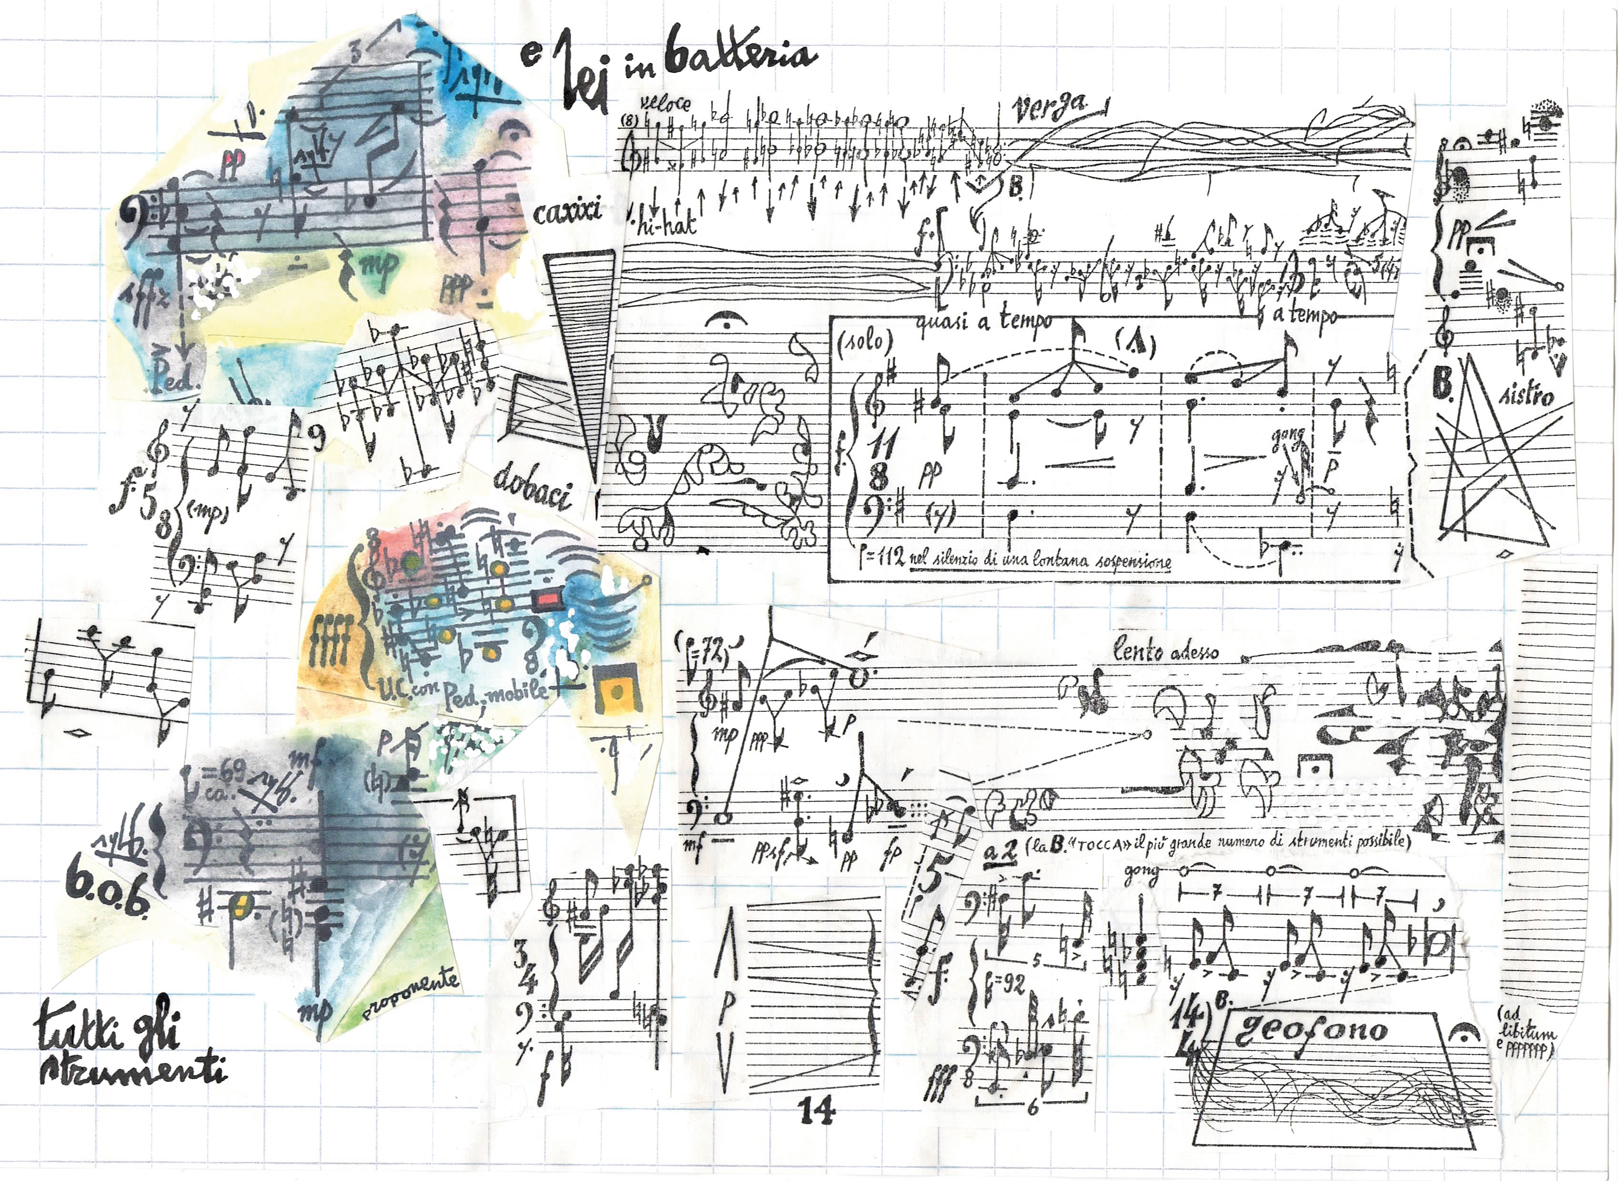 e lei in batteria
veloce
(8)
verga
B.
hi-hat
caxixi
3
pp
sffz
mp
ppp
Ped.
f
quasi a tempo
a tempo
(solo)
(A)
11
8
f
pp
gong
p
♩=112 nel silenzio di una lontana sospensione
pp
B.
sistro
9
dobaci
f
5
8
(mp)
ffff
8
8
U.C. con Ped. mobile
(♩=72)
mp
ppp
p
mf
pp
fp
lento adesso
♩=69
ca.
mf
p
b.o.b.
mp
proponente
tutti gli
strumenti
3
4
f
p
14
5
f
a 2 (la B. "TOCCA" il più grande numero di strumenti possibile)
5
♩=92
fff
8
6
gong
7
7
7
14)
4
B.
geofono
(ad
libitum
e ppppppp)